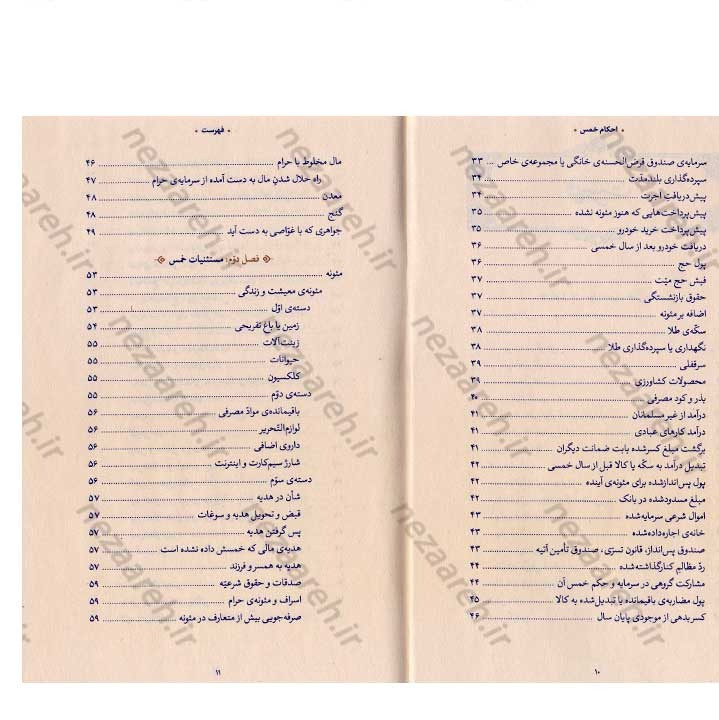 • احکام خمس •
سرمایه‌ی صندوق قرض‌الحسنه‌ی خانگی یا مجموعه‌ی خاص ... ۳۳
سپرده‌گذاری بلندمدّت ... ۳۴
پیش‌دریافتِ اجرت ... ۳۴
پیش‌پرداخت‌هایی که هنوز مئونه نشده ... ۳۵
پیش‌پرداخت خرید خودرو ... ۳۵
دریافت خودرو بعد از سال خمسی ... ۳۶
پول حج ... ۳۶
فیش حج میّت ... ۳۷
حقوق بازنشستگی ... ۳۷
اضافه بر مئونه ... ۳۷
سکّه‌ی طلا ... ۳۸
نگهداری یا سپرده‌گذاری طلا ... ۳۸
سرقفلی ... ۳۹
محصولات کشاورزی ... ۳۹
بذر و کود مصرفی ... ۴۰
درآمد از غیر مسلمانان ... ۴۱
درآمد کارهای عبادی ... ۴۱
برگشت مبلغ کسرشده بابت ضمانت دیگران ... ۴۱
تبدیل درآمد به سکّه یا کالا قبل از سال خمسی ... ۴۲
پول پس‌اندازشده برای مئونه‌ی آینده ... ۴۲
مبلغ مسدودشده در بانک ... ۴۲
اموال شرعی سرمایه‌شده ... ۴۳
خانه‌ی اجاره‌داده‌شده ... ۴۳
صندوق پس‌انداز، قانون تسرّی، صندوق تأمین آتیه ... ۴۳
ردّ مظالمِ کنارگذاشته‌شده ... ۴۴
مشارکت گروهی در سرمایه و حکم خمس آن ... ۴۴
پول مضاربه‌ی باقیمانده یا تبدیل‌شده به کالا ... ۴۵
کسر بدهی از موجودی پایان سال ... ۴۶
۱۰
• فهرست •
مال مخلوط با حرام ... ۴۶
راه حلال شدنِ مال به دست آمده از سرمایه‌ی حرام ... ۴۷
معدن ... ۴۸
گنج ... ۴۸
جواهری که با غوّاصی به دست آید ... ۴۹
فصل دوّم: مستثنیات خمس
مئونه ... ۵۳
مئونه‌ی معیشت و زندگی ... ۵۳
دسته‌ی اوّل ... ۵۳
زمین یا باغ تفریحی ... ۵۴
زینت‌آلات ... ۵۵
حیوانات ... ۵۵
کلکسیون ... ۵۵
دسته‌ی دوّم ... ۵۵
باقیمانده‌ی موادّ مصرفی ... ۵۶
لوازم‌التّحریر ... ۵۶
داروی اضافی ... ۵۶
شارژ سیم‌کارت و اینترنت ... ۵۶
دسته‌ی سوّم ... ۵۶
شأن در هدیه ... ۵۷
قبض و تحویل هدیه و سوغات ... ۵۷
پس گرفتن هدیه ... ۵۷
هدیه‌ی مالی که خمسش داده نشده است ... ۵۷
هدیه به همسر و فرزند ... ۵۷
صدقات و حقوق شرعیّه ... ۵۹
اسراف و مئونه‌ی حرام ... ۵۹
صرفه‌جویی بیش از متعارف در مئونه ... ۵۹
۱۱
nezaareh.ir